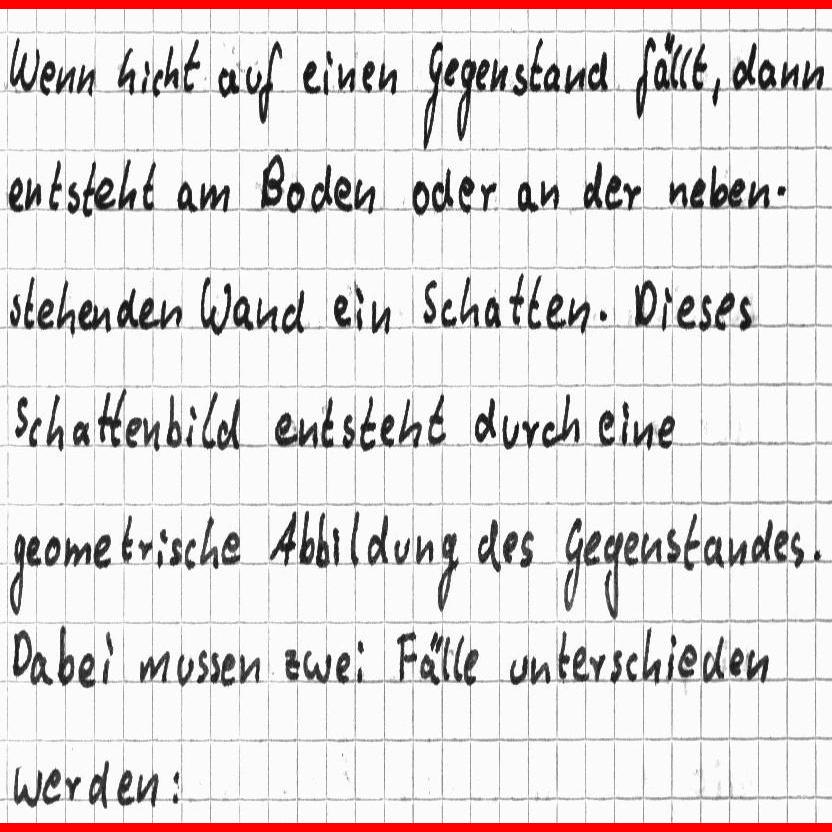 Wenn hicht auf einen Gegenstand fällt, dann
entsteht am Boden oder an der neben-
stehenden Wand ein Schatten. Dieses
Schattenbild entsteht durch eine
geometrische Abbildung des Gegenstandes.
Dabei mussen zwei Fälle unterschieden
werden: